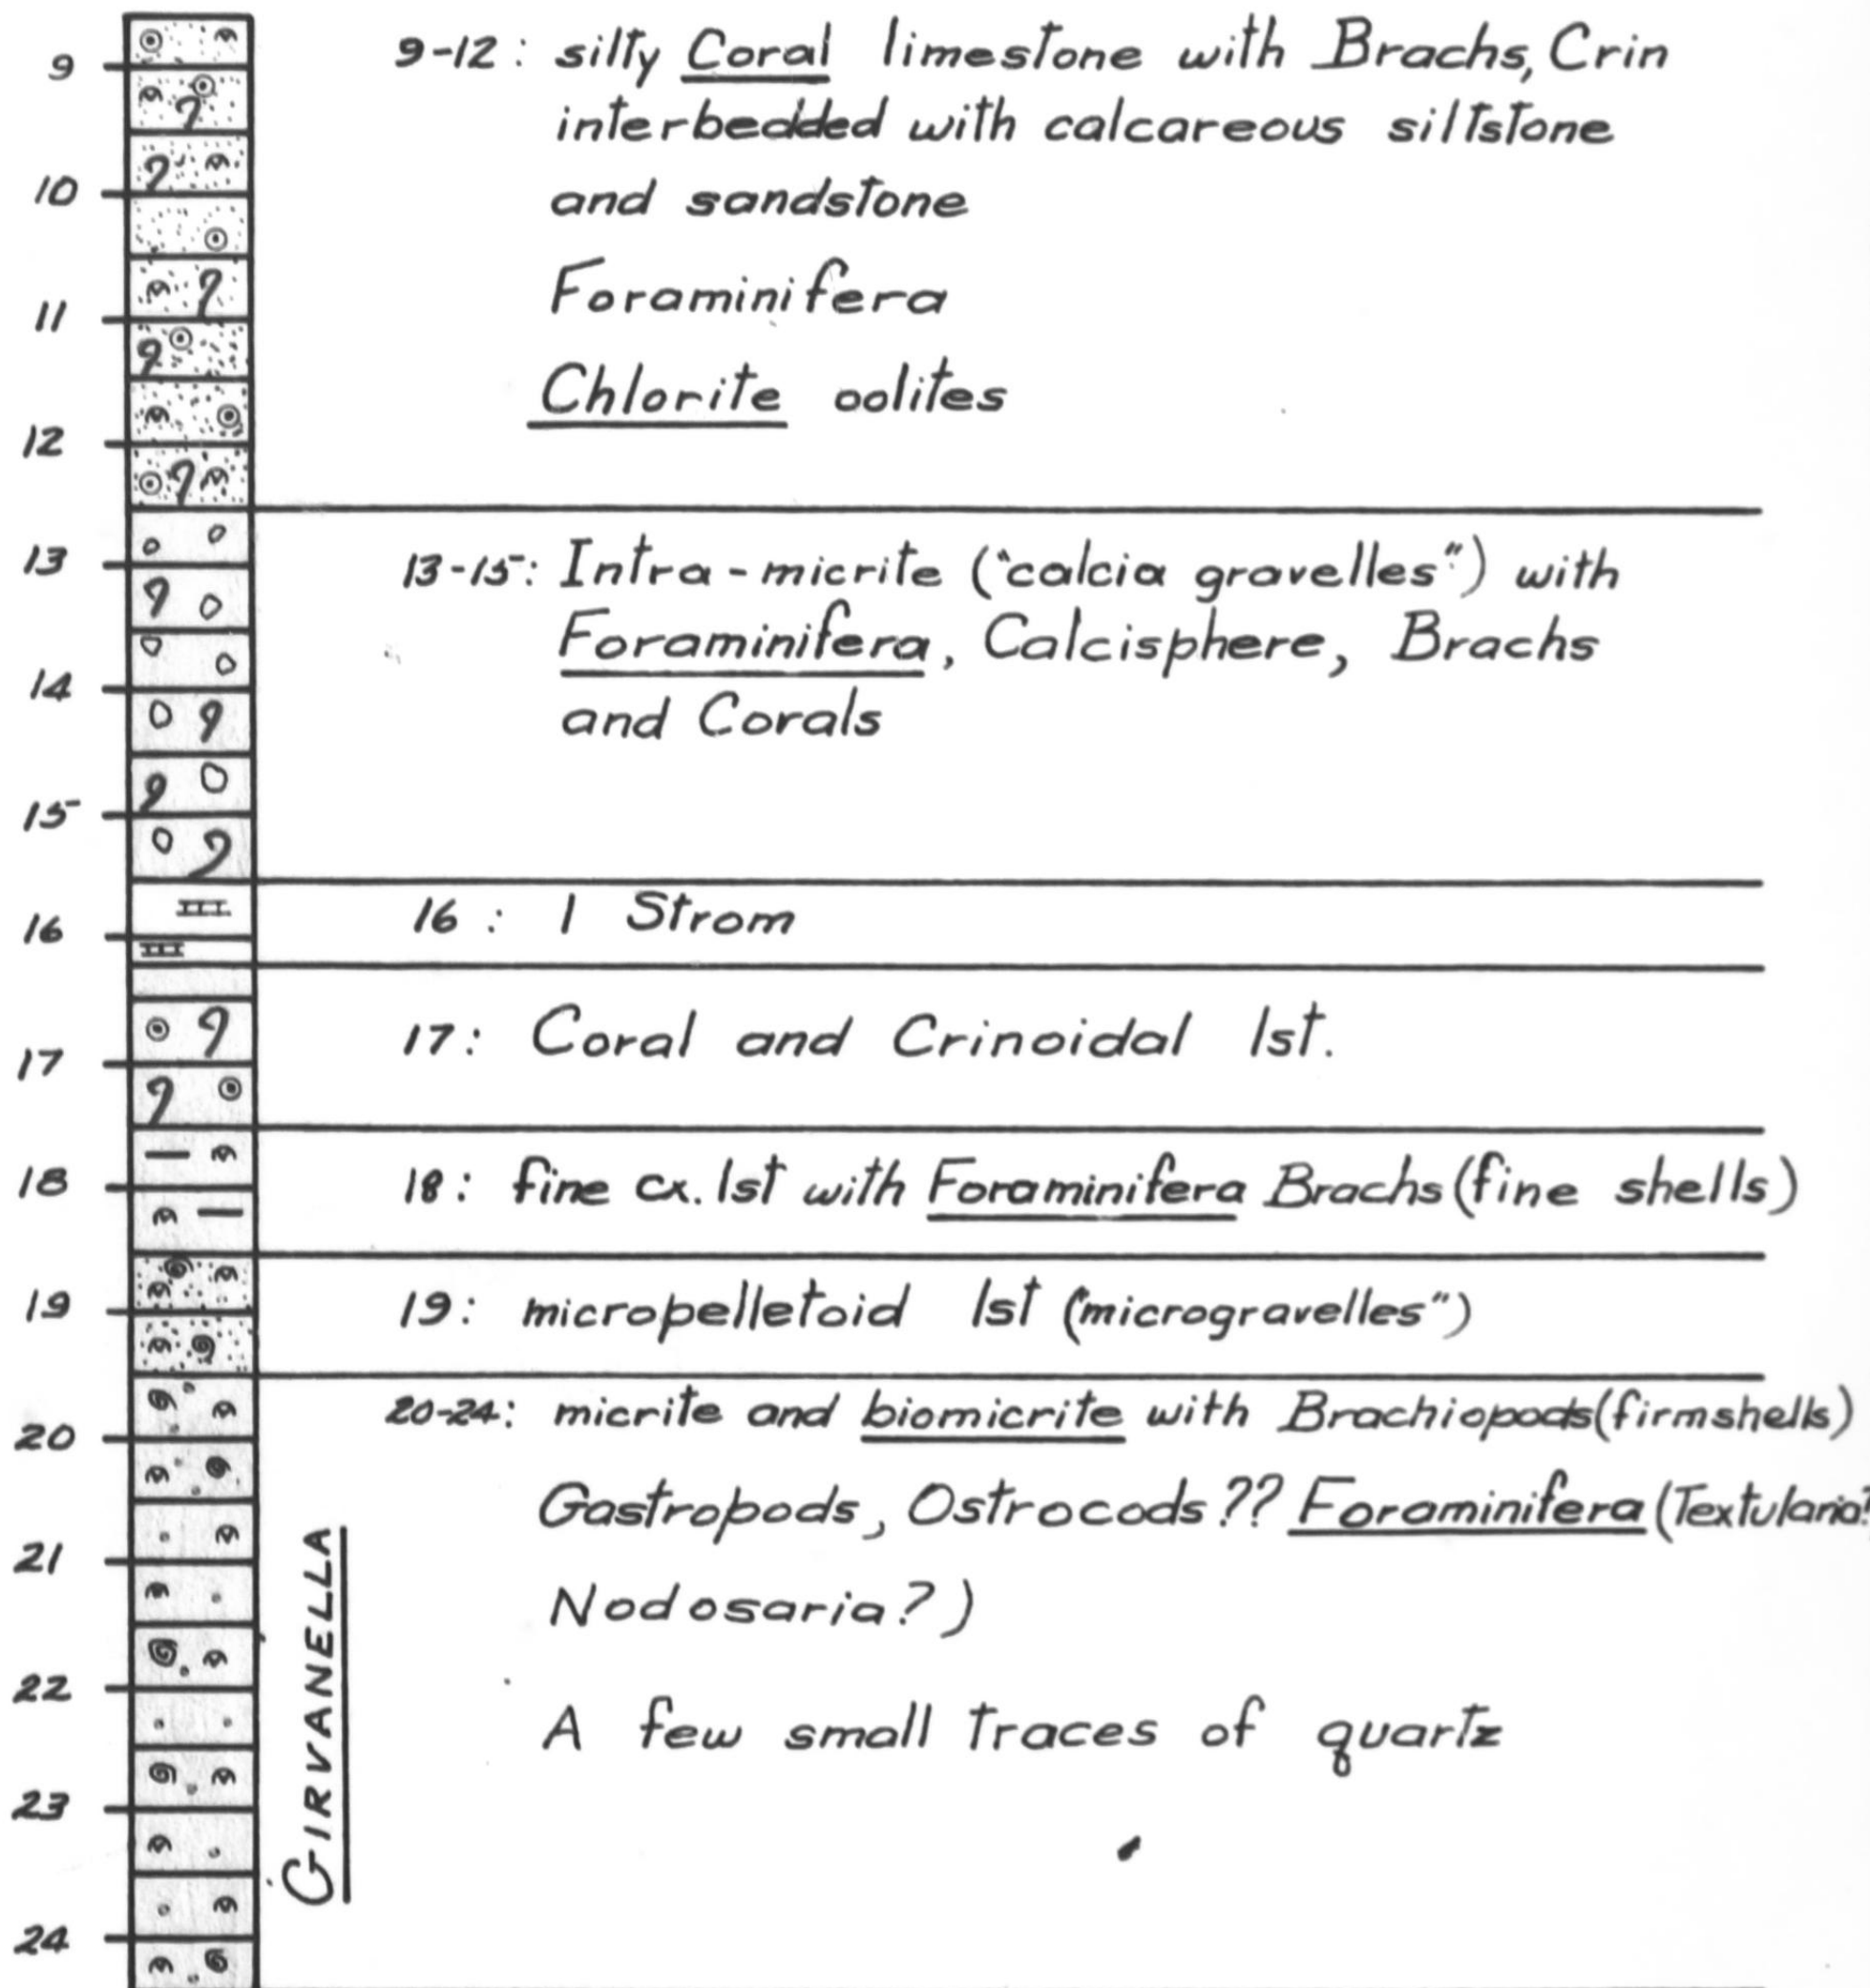 9
10
11
12
13
14
15
16
17
18
19
20
21
22
23
24
9-12: silty Coral limestone with Brachs, Crin
interbedded with calcareous siltstone
and sandstone
Foraminifera
Chlorite oolites
13-15: Intra-micrite ("calcia gravelles") with
Foraminifera, Calcisphere, Brachs
and Corals
16: 1 Strom
17: Coral and Crinoidal lst.
18: fine cx. lst with Foraminifera Brachs (fine shells)
19: micropelletoid lst ("microgravelles")
20-24: micrite and biomicrite with Brachiopods (firmshells)
Gastropods, Ostrocods?? Foraminifera (Textularia?
Nodosaria?)
A few small traces of quartz
GIRVANELLA